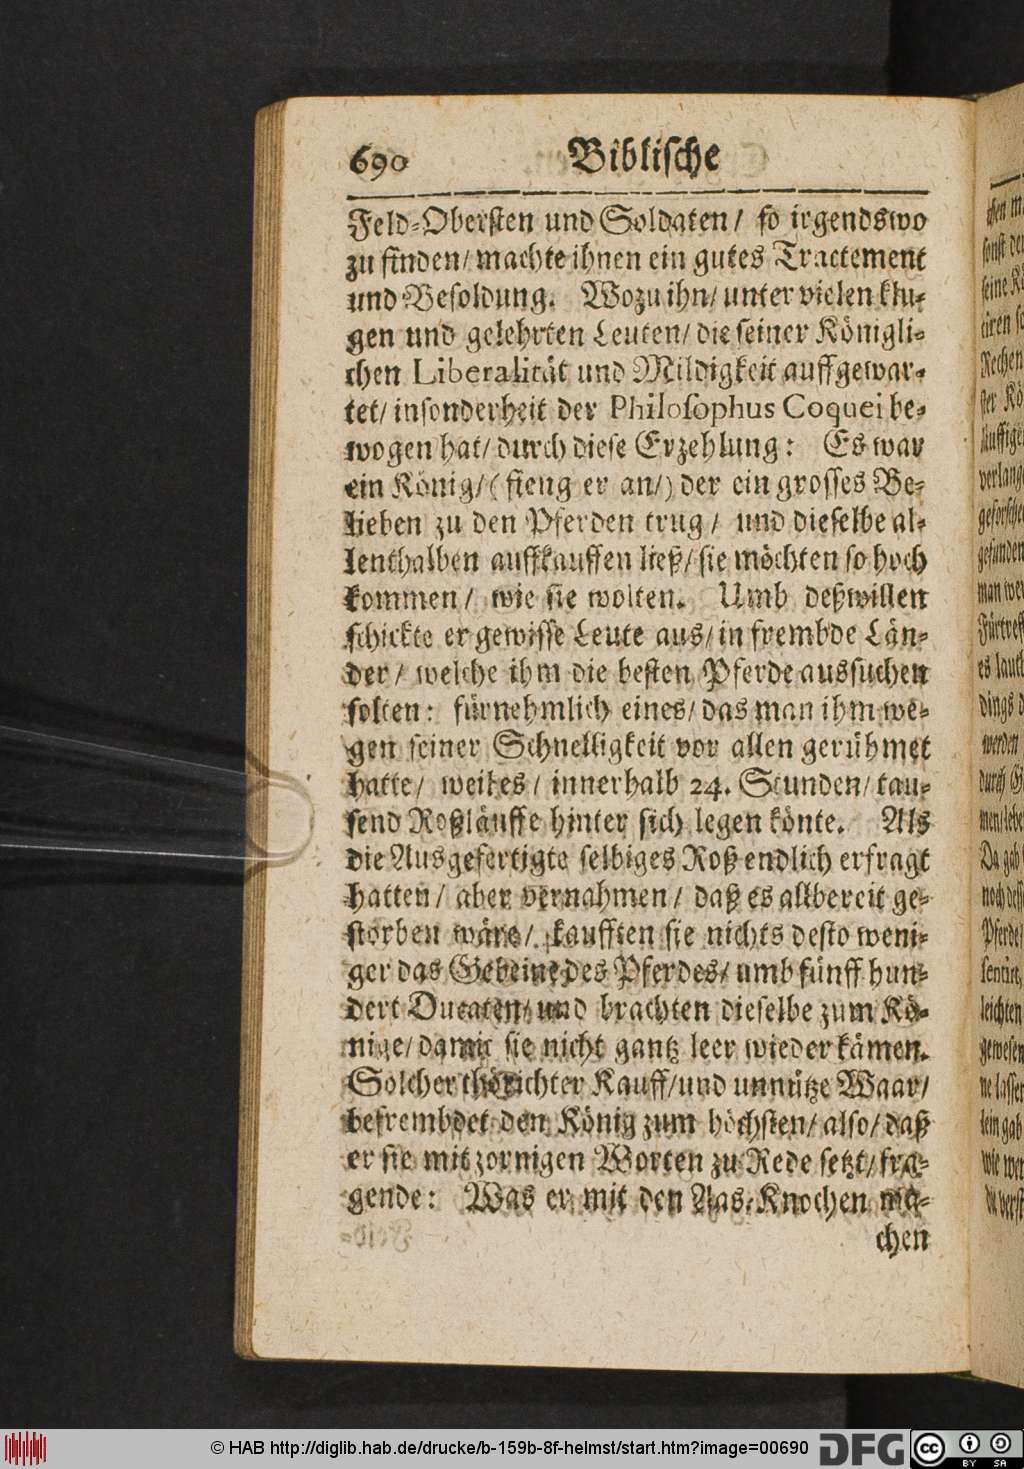 690 Biblische
Feld-Obersten und Soldaten/ so irgendswo
zu finden/ machte ihnen ein gutes Tractement
und Besoldung. Wozu ihn/ unter vielen klu-
gen und gelehrten Leuten/ die seiner Königli-
chen Liberalität und Mildigkeit auffgewar-
tet/ insonderheit der Philosophus Coquei be-
wogen hat/ durch diese Erzehlung: Es war
ein König/ (fieng er an/) der ein grosses Be-
lieben zu den Pferden trug/ und dieselbe al-
lenthalben auffkauffen ließ/ sie möchten so hoch
kommen/ wie sie wolten. Umb deßwillen
schickte er gewisse Leute aus/ in frembde Län-
der/ welche ihm die besten Pferde aussuchen
solten: fürnehmlich eines/ das man ihm we-
gen seiner Schnelligkeit vor allen gerühmet
hatte/ weil es/ innerhalb 24. Stunden/ tau-
send Roßläuffe hinter sich legen könte. Als
die Ausgefertigte selbiges Roß endlich erfragt
hatten/ aber vernahmen/ daß es allbereit ge-
storben wäre/ kaufften sie nichts desto weni-
ger das Gebeine des Pferdes/ umb fünff hun-
dert Ducaten/ und brachten dieselbe zum Kö-
nige/ damit sie nicht gantz leer wieder kämen.
Solcher thörichter Kauff/ und unnütze Waar/
befrembdet den König zum höchsten/ also/ daß
er sie mit zornigen Worten zu Rede setzt/ fra-
gende: Was er mit den Aas-Knochen ma-
chen
© HAB http://diglib.hab.de/drucke/b-159b-8f-helmst/start.htm?image=00690 DFG cc BY SA